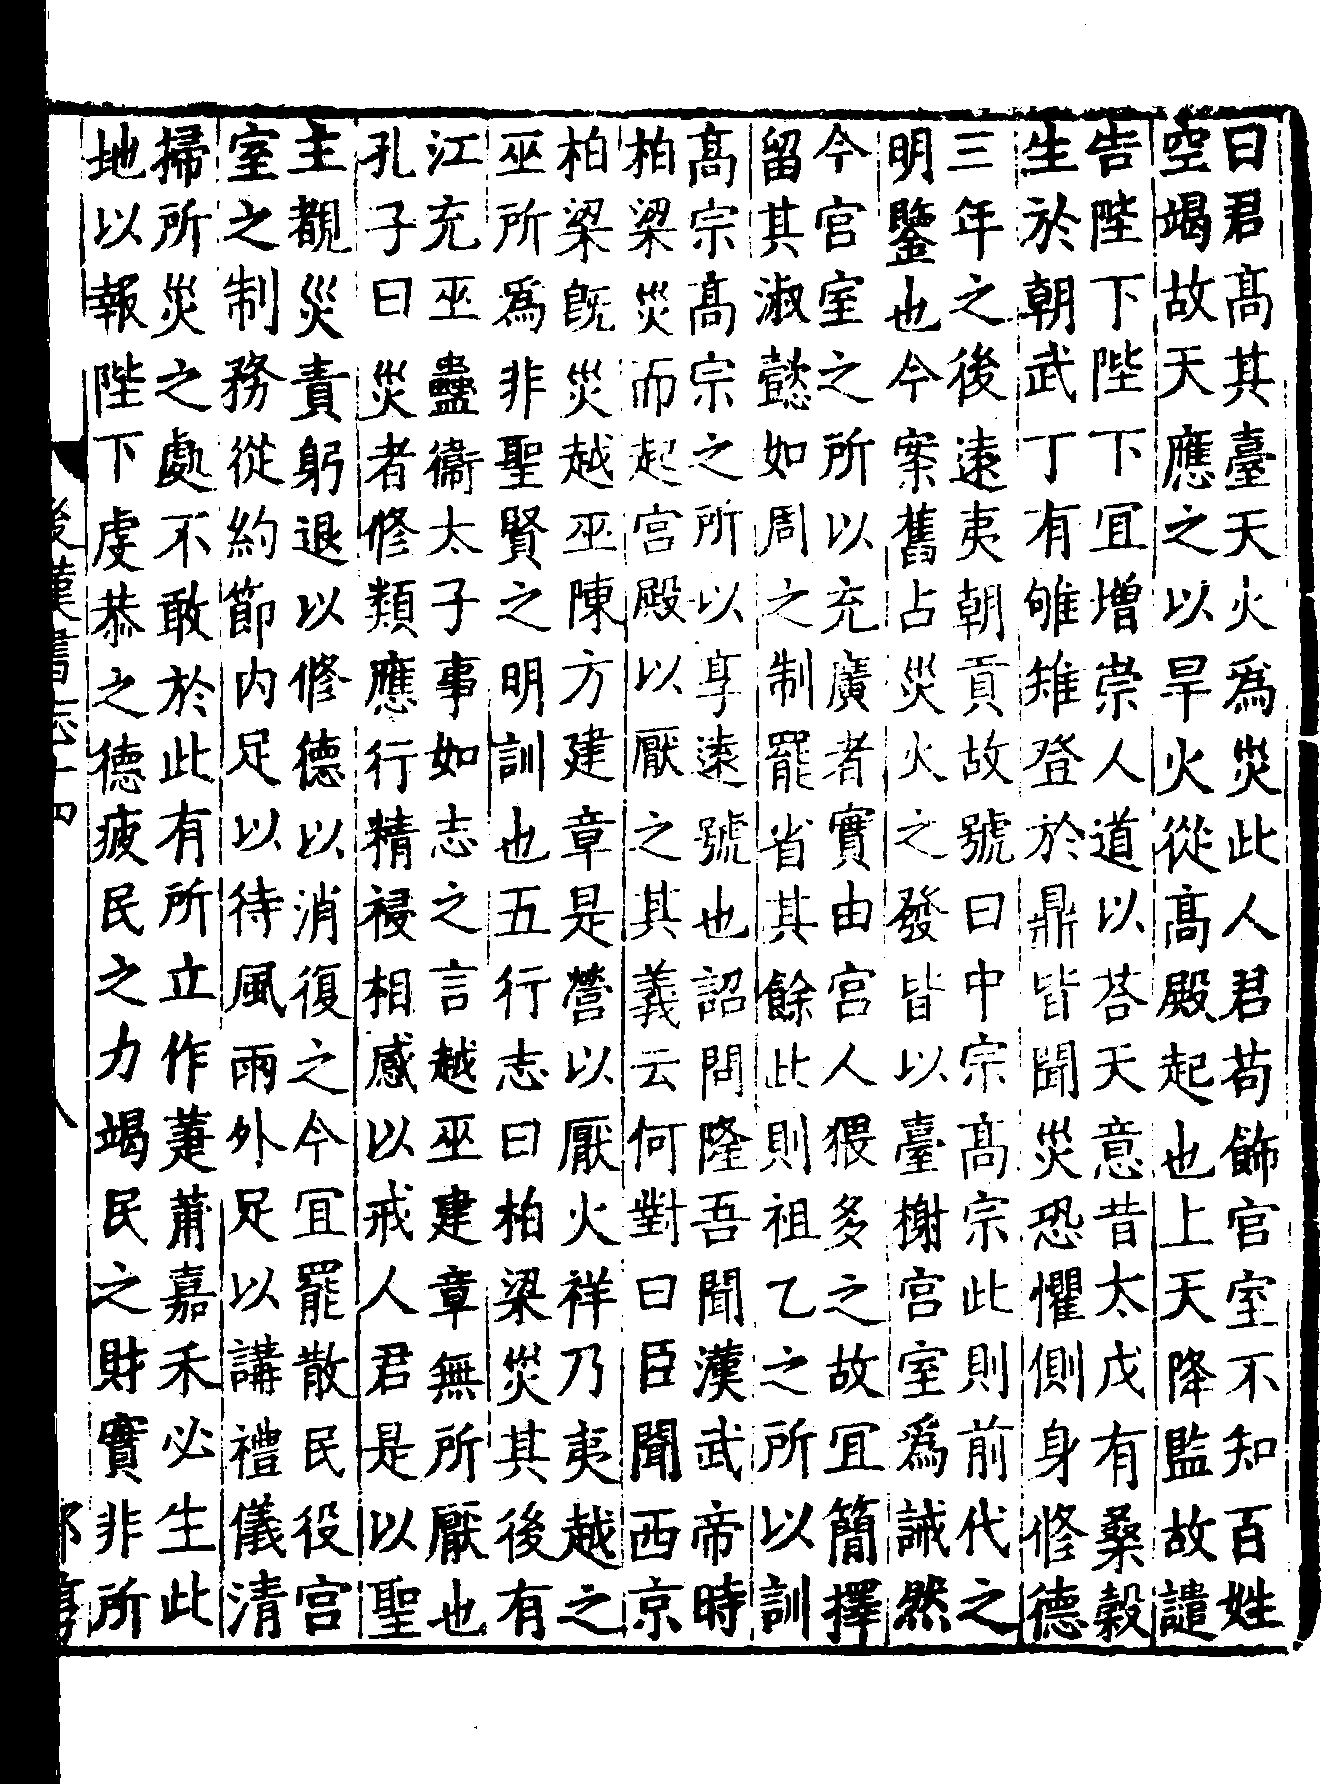 曰君髙其臺天火爲災此人君苟飾宫室不知百姓
空竭故天應之以旱火從髙殿起也上天降監故譴
告陛下陛下冝增崇人道以荅天意昔太戊有桑榖
生於朝武丁有雊雉登於鼎皆聞災恐懼側身修德
三年之後逺夷朝貢故號曰中宗髙宗此則前代之
明鑒也今案舊占災火之發皆以臺榭宫室爲誡然
今宫室之所以充廣者實由宫人猥多之故冝簡擇
留其淑懿如周之制罷省其餘此則祖乙之所以訓
髙宗髙宗之所以享逺號也詔問隆吾聞漢武帝時
柏梁災而起宫殿以厭之其義云何對曰臣聞西京
柏梁旣災越巫陳方建章是營以厭火祥乃夷越之
巫所爲非聖賢之明訓也五行志曰柏梁災其後有
江充巫蠱衞太子事如志之言越巫建章無所厭也
孔子曰災者修類應行精祲相感以戒人君是以聖
主覩災責躬退以修德以消復之今冝罷散民役宫
室之制務從約節内足以待風雨外足以講禮儀清
掃所災之處不敢於此有所立作萐莆嘉禾必生此
地以報陛下虔恭之德疲民之力竭民之財實非所
後漢書志十四